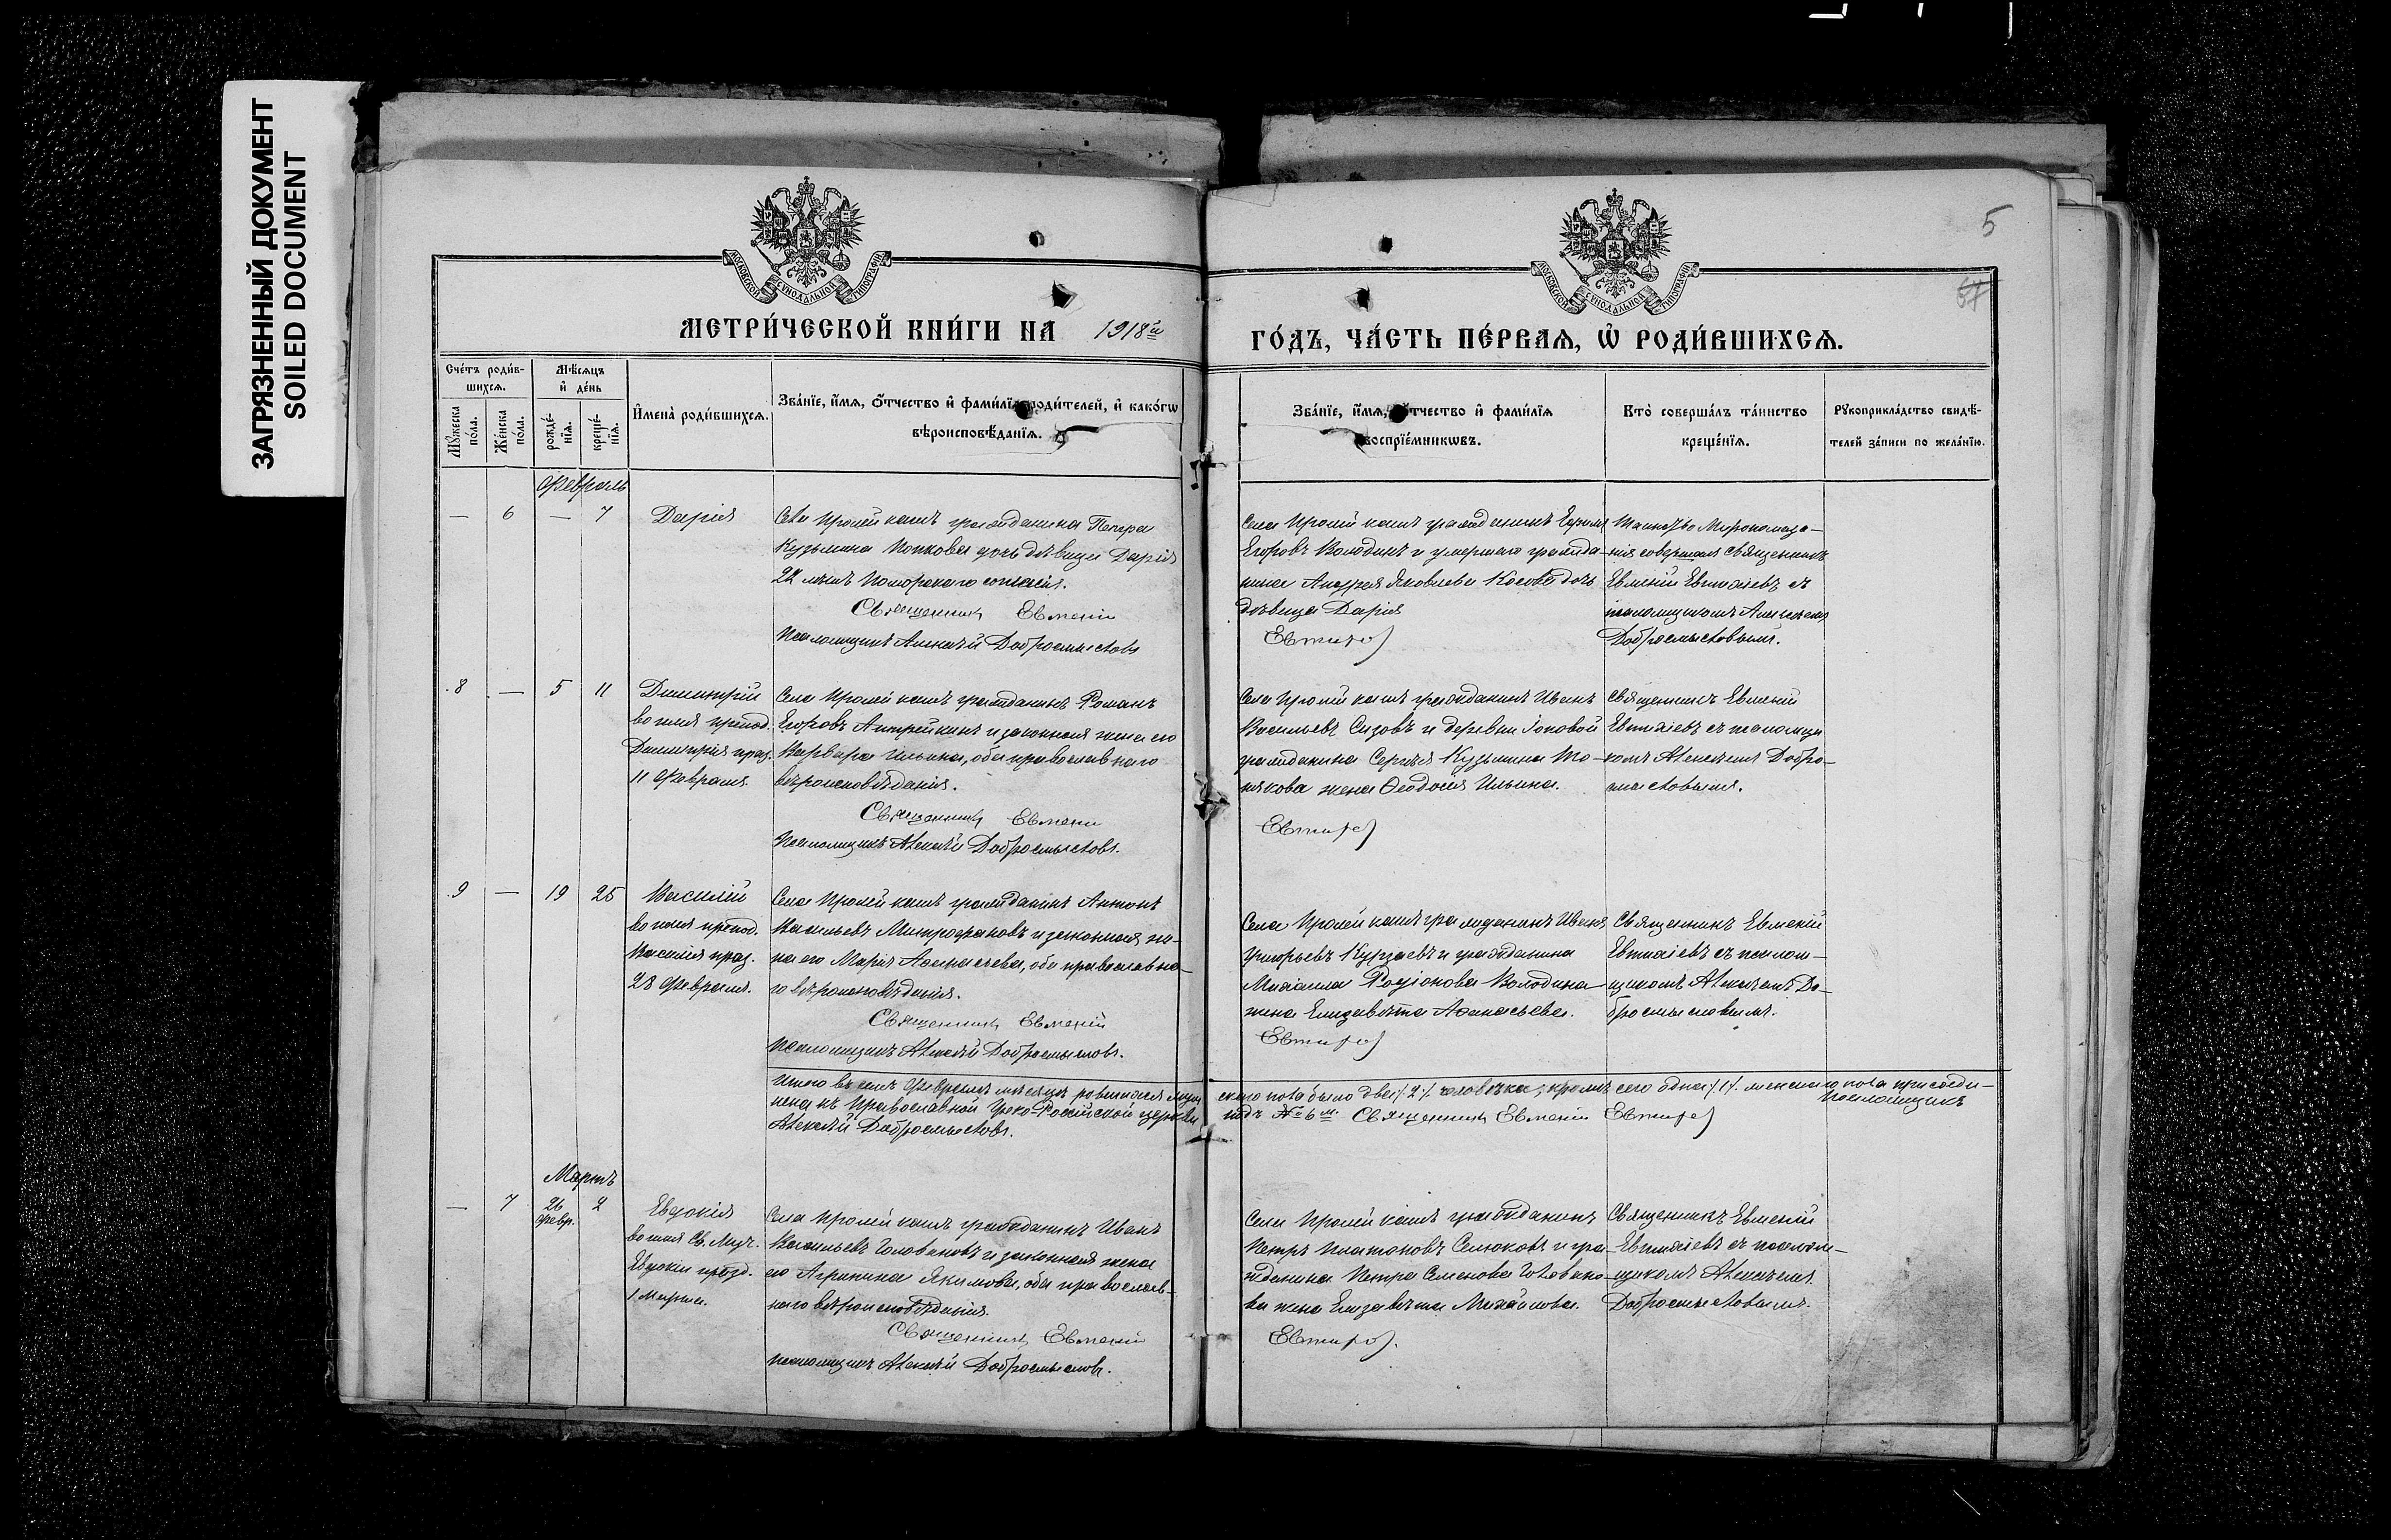 ЗАГРЯЗНЕННЫЙ ДОКУМЕНТ
SOILED DOCUMENT
5
67
МОСКОВСКОЙ СУНОДАЛЬНОЙ ТИПОГРАФІИ
МОСКОВСКОЙ СУНОДАЛЬНОЙ ТИПОГРАФІИ
МЕТРИ́ЧЕСКОЙ КНИ́ГИ НА 1918й
ГО́ДЪ, ЧА́СТЬ ПЕ́РВАѦ, Ѡ҆ РОДИ́ВШИХСѦ.
Сче́тъ роди́в-
шихсѧ.
Мꙋ́жеска по́ла.
Же́нска по́ла.
Мѣ́сѧцъ
и҆ де́нь
рожде́-
нїѧ.
креще́-
нїѧ.
И҆мена̀ роди́вшихсѧ.
Зва́нїе, и҆́мѧ, ѻ҆́тчество и҆ фами́лїѧ роди́телей, и҆ како́гѡ
вѣроисповѣ́данїѧ.
Зва́нїе, и҆́мѧ, ѻ҆́тчество и҆ фами́лїѧ
воспрїе́мникѡвъ.
Кто̀ соверша́лъ та́инство
креще́нїѧ.
Рꙋкоприкла́дство свидѣ́-
телей за́писи по жела́нїю.
Февраль
— 6 — 7
Дарія
Села гражданина Петра
Кузьмина Попкова дочь дѣвица Дарія
22 лѣтъ Поморскаго согласія.
Священникъ Евменій
Псаломщикъ Алексѣй Добросмысловъ
Села гражданинъ
Егоровъ Володинъ и умершаго гражда-
нина Андрея Яковлева Косова дочь
дѣвица Дарія
Таинство Миропомаза-
нія совершалъ священникъ
Евменій съ
псаломщикомъ Алексѣемъ
Добросмысловымъ.
8 — 5 11
Димитрій
во имя препод.
Димитрія праз.
11 Февраля.
Села гражданинъ Романъ
Егоровъ и законная жена его
Варвара Ильина, оба православнаго
вѣроисповѣданія.
Священникъ Евменій
Псаломщикъ Алексѣй Добросмысловъ.
Села гражданинъ Иванъ
Васильевъ Сизовъ и деревни
гражданина Сергѣя Кузьмина То-
кова жена Ѳеодосія Ильина.
Священникъ Евменій
съ псаломщи
комъ Алексѣемъ Добро-
мысловымъ.
9 — 19 25
Василій
во имя препод.
Василія праз.
28 Февраля.
Села гражданинъ Антонъ
Васильевъ Митрофановъ и законная же-
на его Марія Аѳанасьева, оба православна-
го вѣроисповѣданія.
Священникъ Евменій
Псаломщикъ Алексѣй Добросмысловъ.
Села гражданинъ Иванъ
Григорьевъ и гражданина
Михаила Родіонова Володина
жена Елизавета Аѳанасьева.
Священникъ Евменій
съ псалом-
щикомъ Алексѣемъ До-
бросмысловымъ.
Итого въ семъ Февралѣ мѣсяцѣ родившихся муже
скаго пола было два /2/ человѣка, кромѣ сего одна /1/ женскаго пола присоеди-
нена къ Православной Греко-Россійской церкви
подъ № 6 м. Священникъ Евменій
Псаломщикъ
Алексѣй Добросмысловъ.
Мартъ
— 7 26 2
Февр.
Евдокія
во имя Св. Муч.
Евдокіи празд.
1 Марта.
Села гражданинъ Иванъ
Васильевъ Головановъ и законная жена
его Агрипина Якимова, оба православ-
наго вѣроисповѣданія.
Священникъ Евменій
Псаломщикъ Алексѣй Добросмысловъ.
Села гражданинъ
Петръ Платоновъ и гра-
жданина Петра Семенова Голавано-
ва жена Елизавета Михайлова.
Священникъ Евменій
съ псалом-
щикомъ Алексѣемъ
Добросмысловымъ.